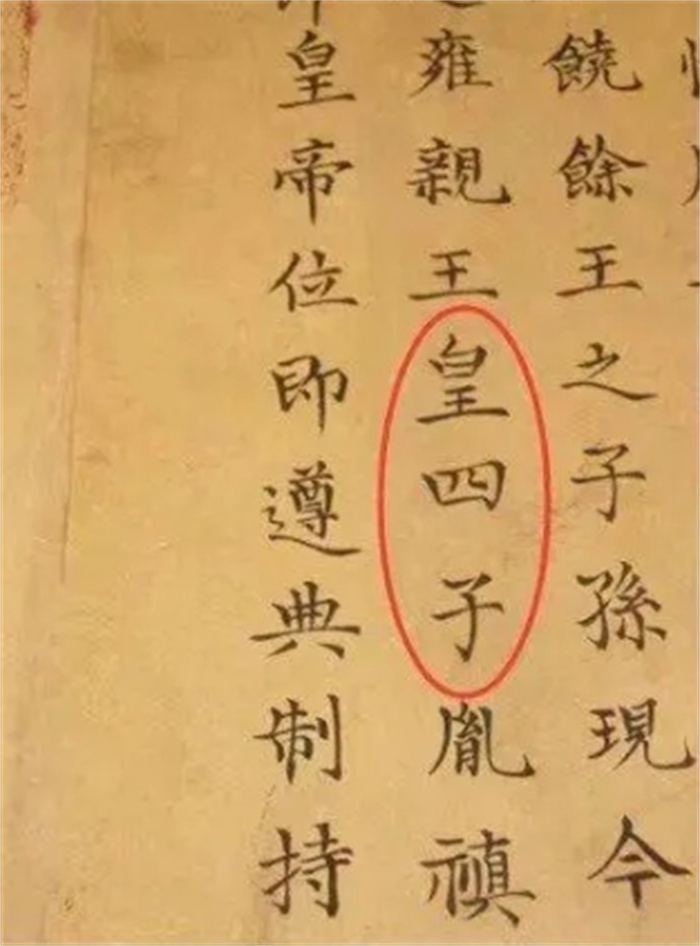 饒餘王之子孫現今
雍親王皇四子胤禛
皇帝位即遵典制持